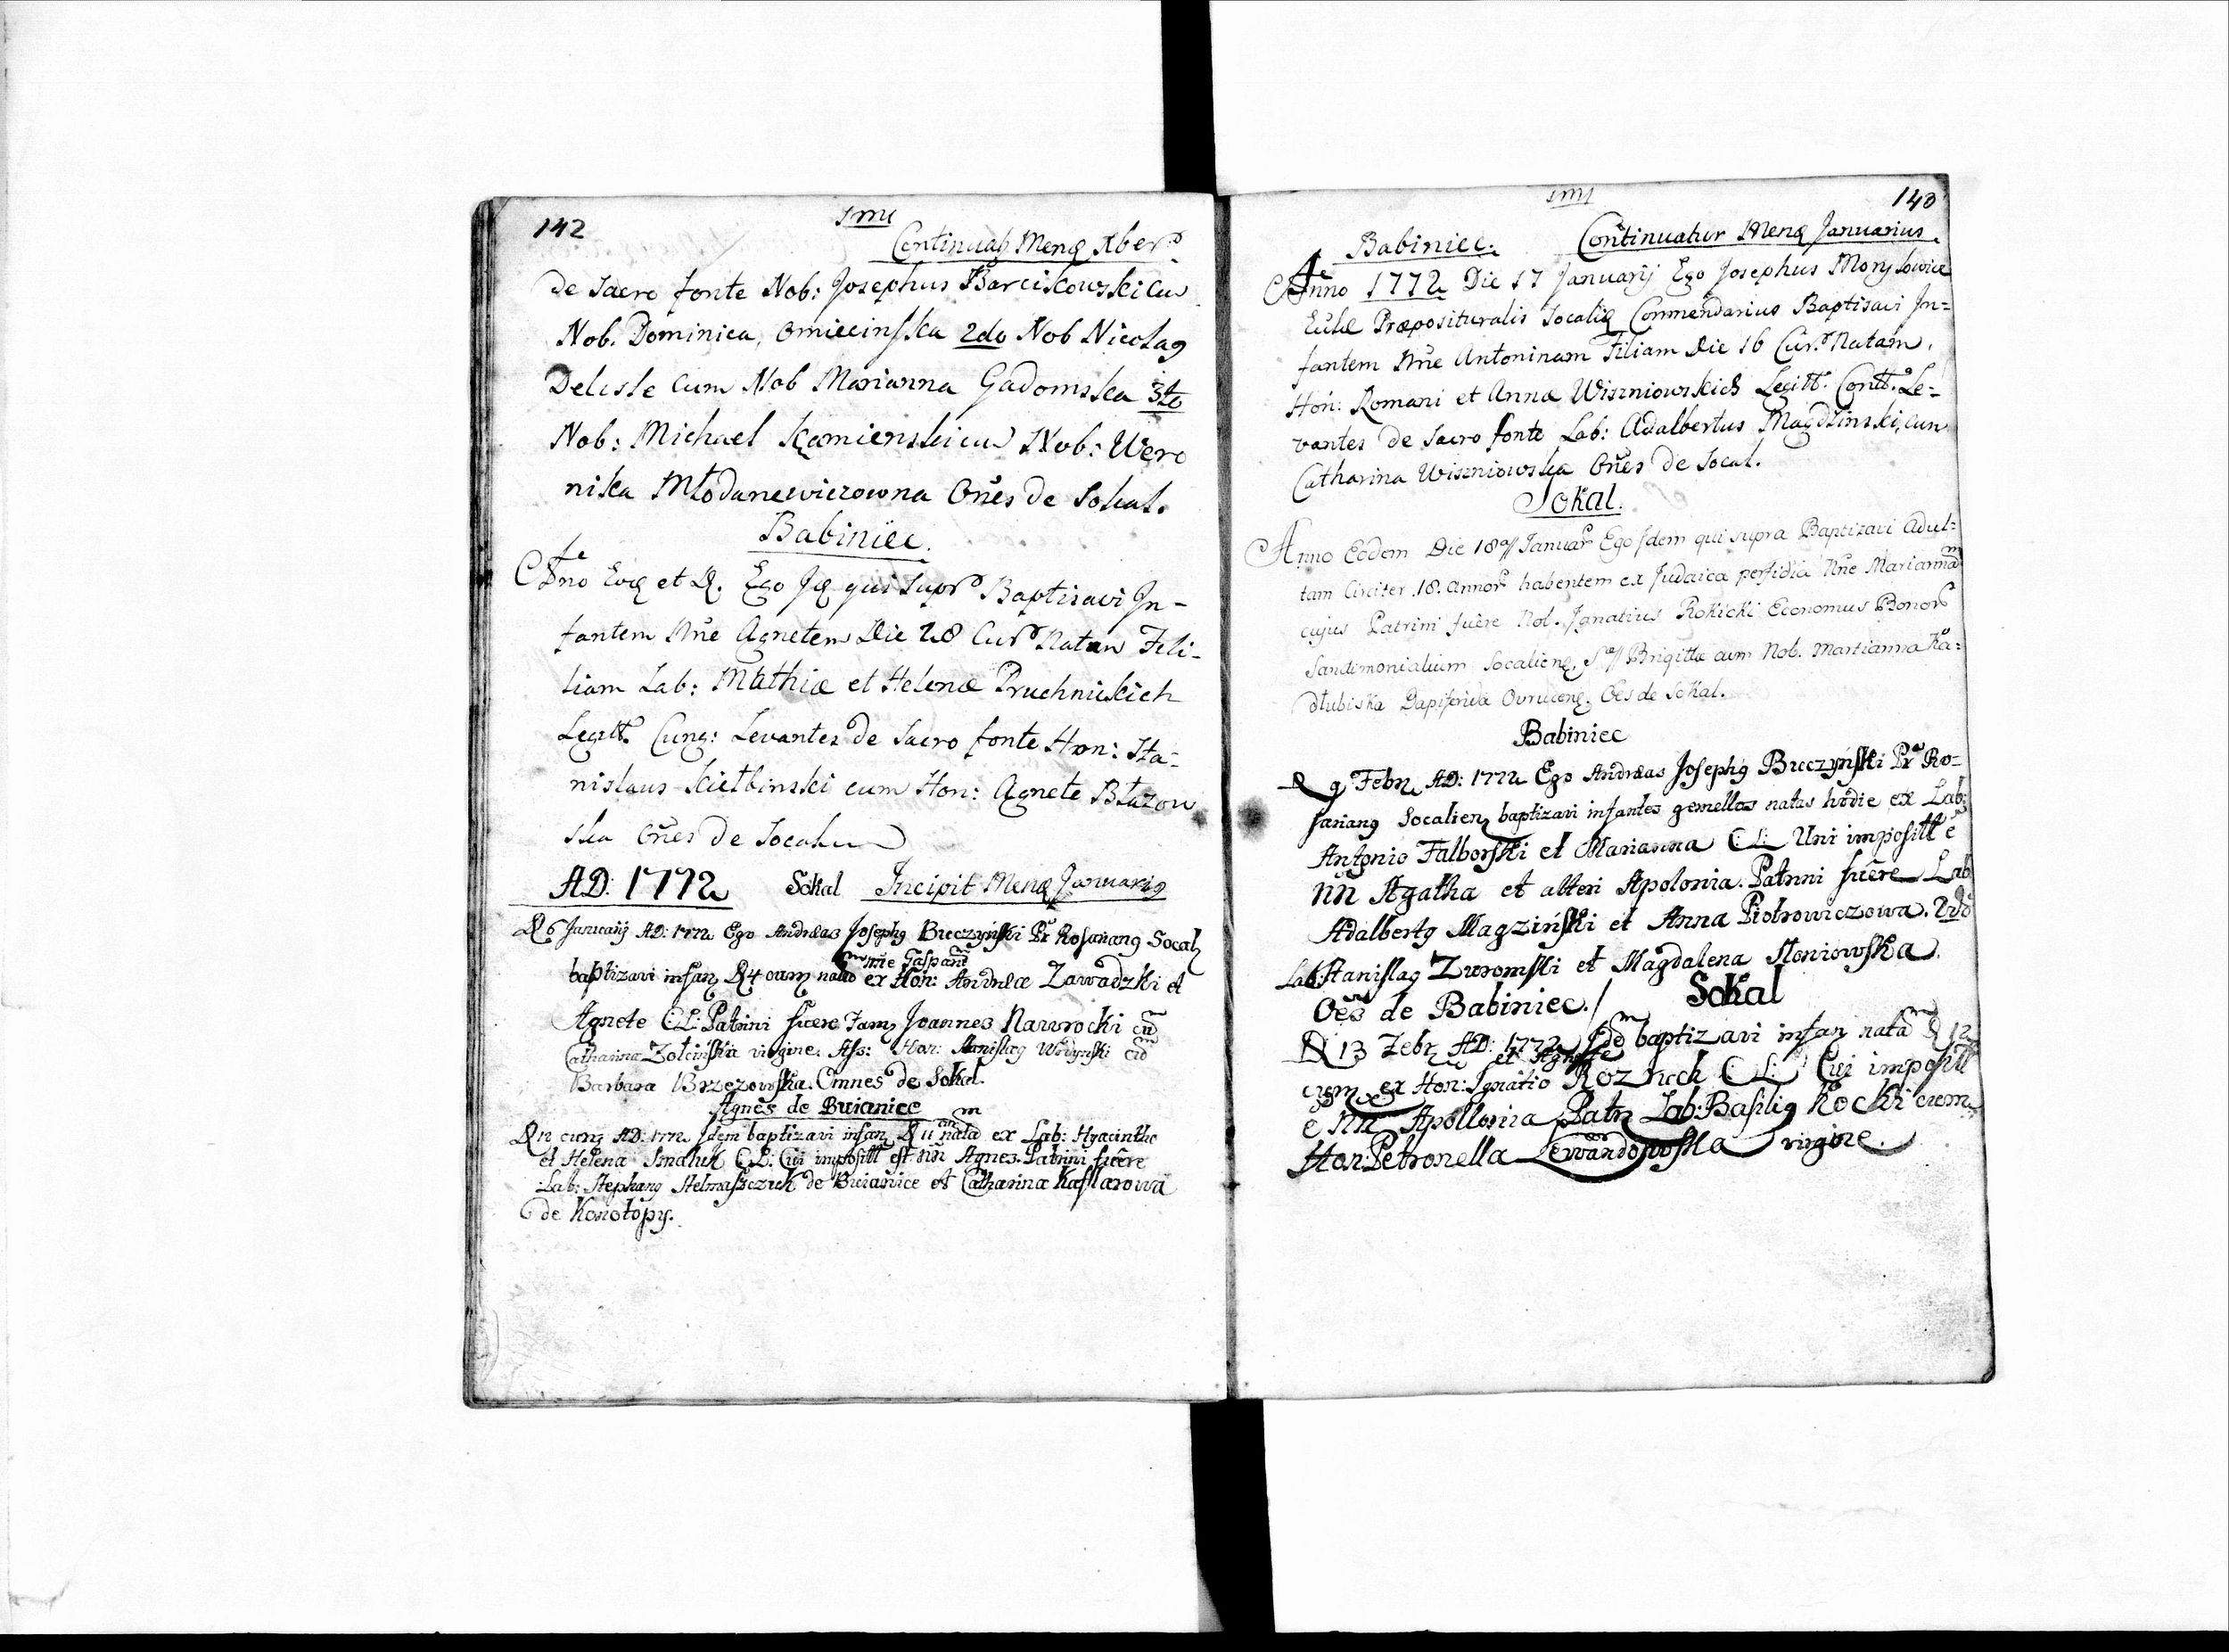 142
Continuatq Mensq Xber
de Sacro fonte Nob: Josephus Barciskowski cu
Nob. Dominica, Omiecinska 2do Nob Nicolaq
Delisle Cum Nob Marianna Gadomska 3tio
Nob: Michael Kamienski cu Nob: Wero
nika Młodanewiczowna Oñes de Sokal.
Babiniec.
Eoq et D. Ego Jq qui Supr Baptisavi In-
fantem Nñe Agnetem Die 28 Cur Natam Fili-
liam Lab: Mathiæ et Helenæ Pruchnickich
Legitt. Cung: Levantes de Sacro fonte Hon: Sta-
nislaus Kiełbinski cum Hon: Agnete Błazow
ska Oñes de Socalu
AD: 1772 Sokal Incipit Mensq Januariq
D 6 Januarij AD: 1772 Ego Andræas Josephq Buczynski Pr Rosarianq Socal
nñe Gaspard
baptizavi infan D 4 natu ex Hon: Andræa Zawadzki et
Agnete C: L: Patrini fuere Fam Joannes Nawrocki cũ
Catharina Zołcińska virgine. Ass: Hon: Stanislaq Wodynski cũ
Barbara Brzezowska. Omnes de Sokal.
Agnes de Buianiec
D 12 AD: 1772 Idem baptizavi infan D 11 nata ex Lab: Hyacintho
et Helena Smaluk C: L: Cui impositt est nñ Agnes. Patrini fuere
Lab: Stephanq Stelmaszczuk de Buianice et Catharina Kaflarowa
de Konotopy.
140
Babiniec. Continuatur Mensq Januarius.
Anno 1772 Die 17 Januarij Ego Josephus Morylowicz
Eccliæ Præposituralis Socaliq Commendarius Baptisavi In=
fantem Nñe Antoninam Filiam Die 16 Cur. Natam.
Hon: Romani et Annæ Wiszniowskich Legitt. Contt. Le-
vantes de Sacro fonte Lab: Adalbertus Magdzinski, cum
Catharina Wiszniowska Oñes de Socal.
Sokal.
Anno Eodem Die 18 Januar Ego Idem qui supra Baptizavi Adul=
tam Circiter .18. Annor habentem ex Judaica perfidia Nñe Mariannam
cujus Patrini fuêre Nol. Ignatius Rokicki Economus Bonor
Sandimonialium Socalienq. S Brigittæ cum Nob. Martianna Ka=
dłubiska Dapiferida Ovrucenq. Oẽs de Sokal.
Babiniec
D 9 Febr AD: 1772 Ego Andræas Josephq Buczyński Pr Ro=
sarianq Socalien baptizavi infantes gemellas natas hodie ex Lab:
Antonio Falborski et Marianna C: L: Uni impositt ẽ
nñ Agatha et alteri Apolonia. Patrini fuêre Lab
Adalbertq Magziński et Anna Piotrowiczowa. 2do
Lab: Stanislaq Zuromski et Magdalena Słoniowska.
Oẽs de Babiniec. Sokal
D 13 Febr AD: 1772 Idem baptizavi infan nata D 12
et Agnete
ex Hon: Ignatio Roznek C: L: Cui impositt
ẽ nñ Apollonia Patr Lab: Basiliq Kocki cum
Hon: Petronella Lewandowska virgine.